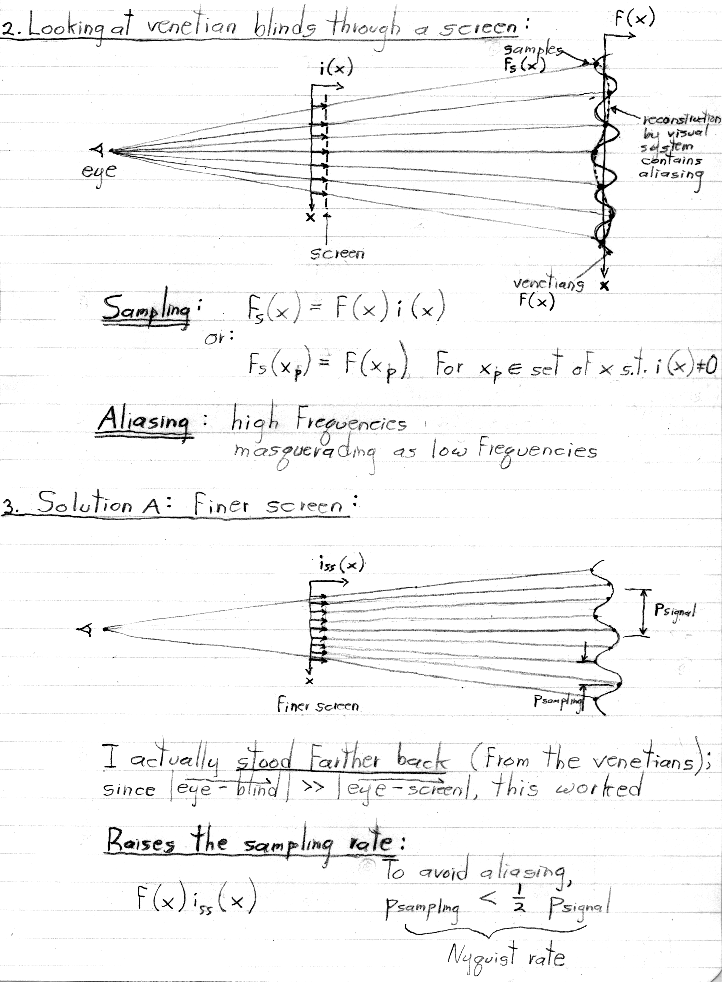 2. Looking at venetian blinds through a screen:
F(x)
samples
Fs(x)
i(x)
reconstruction
by visual
system
contains
aliasing
eye
x
screen
venetians
F(x)
x
Sampling: Fs(x) = F(x) i(x)
or:
Fs(xp) = F(xp), For xp ∈ set of x s.t. i(x)≠0
Aliasing: high Frequencies
masquerading as low Frequencies
3. Solution A: Finer screen:
iss(x)
Psignal
x
Finer screen
Psampling
I actually stood Farther back (From the venetians);
since |eye-blind| >> |eye-screen|, this worked
Raises the sampling rate:
To avoid aliasing,
F(x) iss(x)
Psampling < 1/2 Psignal
Nyquist rate